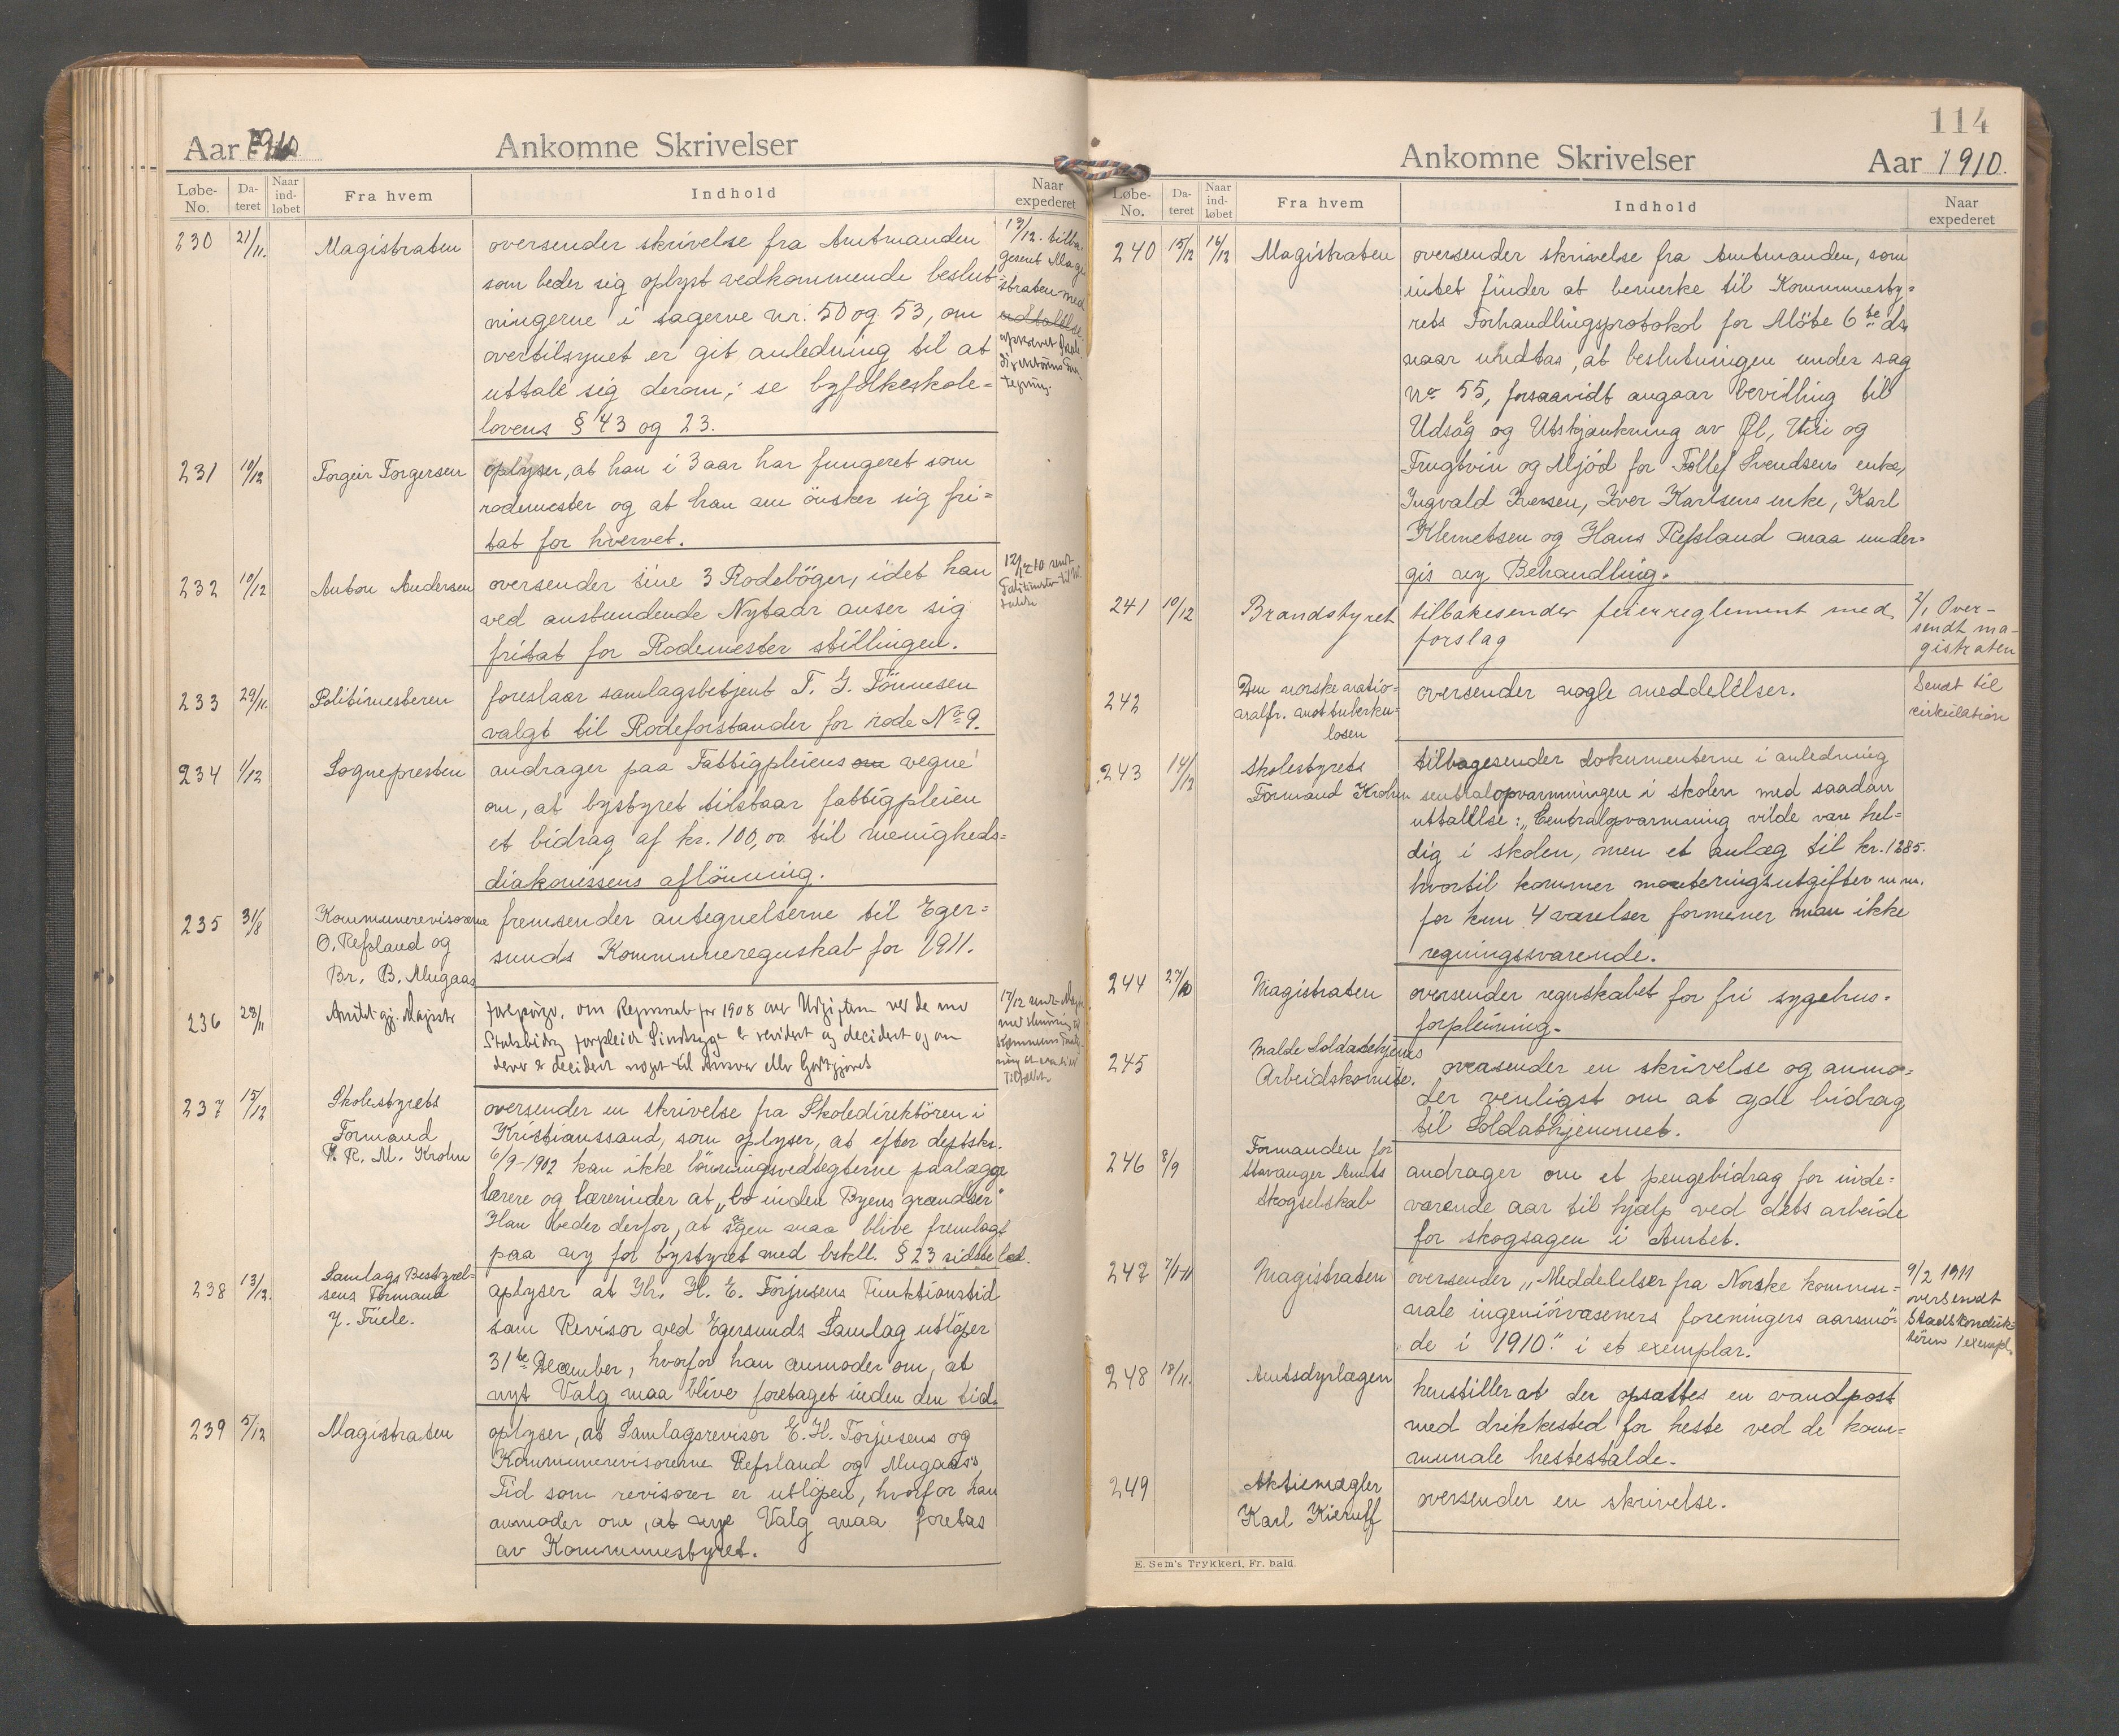 Aar 1910
Ankomne Skrivelser
Løbe-No.
Da-teret
Naar ind-løbet
Fra hvem
Indhold
Naar expederet
230 21/11. Magistraten oversender skrivelse fra Amtmanden
som beder sig oplyst vedkommende beslut-
ningerne i sagerne nr. 50 og 53, om
overtilsynet er git anledning til at
uttale sig derom; se byfolkeskole-
lovens § 43 og 23.
13/12. tilba-
gesent Magi-
straten med
udtalelse
231 10/12 Torgeir Torgersen oplyser, at han i 3 aar har fungeret som
rodemester og at han nu önsker sig fri-
tat for hvervet.
232 10/12 Anton Andersen oversender sine 3 Rodeböger, idet han
ved anstundende Nytaar anser sig
fritat for Rodemester stillingen.
12/12 10 sendt
233 29/11. Politimesteren foreslaar samlagsbetjent T. G. Tönnesen
valgt til Rodeforstander for rode No 9.
234 1/12 Sognepresten andrager paa Fattigpleiens om vegne
om, at bystyret tilstaar fattigpleien
et bidrag af kr. 100,00 til menigheds-
diakonissens aflönning.
235 31/8 Kommunerevisorerne fremsender antegnelserne til Eger-
O. Refsland og sunds Kommuneregnskab for 1911.
Br. B. Mugaas
236 23/11 forespörge, om Regnskab for 1908 over
Statsbidrag forpleiet Sindssyge er revidert og decidert og om
derved er decidert noget til Ansvar eller Godtgjørelse
237 15/12 Skolestyrets Formand P. R. M. Krohn oversender en skrivelse fra Skoledirektören i
Kristianssand, som oplyser, at efter deptskr.
6/9-1902 kan ikke lönningsvedtægterne paalægge
lærere og lærerinder at „bo inden Byens grændser"
Han beder derfor, at sagen maa blive fremlagt
paa ny for bystyret med bskll. § 23 sidste led.
238 13/12. Samlags Bestyrel-
sens Formand
J. Friele.
oplyser at Hr. H. E. Torjusens Funktionstid
som Revisor ved Egersunds Samlag utlöper
31te December, hvorfor han anmoder om, at
nyt Valg maa blive foretaget inden den tid.
239 5/12 Magistraten oplyser, at Samlagsrevisor E. H. Torjusens og
Kommunerevisorerne Refsland og Mugaas's
Tid som revisorer er utlöpen, hvorfor han
anmoder om, at nye Valg maa foretas
av Kommunestyret.
114
Ankomne Skrivelser
Aar 1910.
Løbe-No.
Da-teret
Naar ind-løbet
Fra hvem
Indhold
Naar expederet
240 15/12 16/12 Magistraten oversender skrivelse fra Amtmanden, som
intet finder at bemerke til Kommunesty-
rets Forhandlingsprotokol for Möte 6te ds,
naar undtas, at beslutningen under sag
No 55, forsaavidt angaar bevilling til
Udsalg og Utskjænkning av Øl, Vin og
Frugtvin og Mjöd for Tollef Svendsens enke,
Ingvald Iversen, Iver Karlsens enke, Karl
Klemetsen og Hans Refsland maa under-
gis ny Behandling.
241 10/12 Brandstyret tilbakesender feierreglement med
forslag
2/1 Over-
sendt ma-
gistraten
242 Den norske natio-
nalfr. mot tuberku-
losen
oversender nogle meddelelser.
Sendt til
cirkulation
243 14/12 Skolestyrets
Formand Krohn
tilbagesender dokumenterne i anledning
sentralopvarmningen i skolen med saadan
uttalelse: „Centralopvarmning vilde være hel-
dig i skolen, men et anlæg til kr. 1285.
hvortil kommer monteringsutgifter m.m.
for kun 4 værelser formener man ikke
regningssvarende.
244 27/10 Magistraten oversender regnskabet for fri sygehus-
forpleining.
245 Malde Soldaterhjems
Arbeidskomite.
oversender en skrivelse og anmo-
der venligst om at yde bidrag
til Soldaterhjemmet.
246 8/9 Formanden for
Stavanger Amts
Skogselskab
andrager om et pengebidrag for inde-
værende aar til hjælp ved dets arbeide
for skogsagen i Amtet.
247 7/1-11 Magistraten oversender „Meddelelser fra Norske kommu-
nale ingeniörvæseners foreningers aarsmö-
de i 1910." i et exemplar.
9/2 1911
oversendt
Stadskonduk-
tören 1 exempl.
248 18/11. Amtsdyrlægen henstiller at der opsættes en vandpost
med drikkested for heste ved de kom-
munale hestestalde.
249 Aktiemægler
Karl Kierulf
oversender en skrivelse.
E. Sem's Trykkeri, Fr. hald.